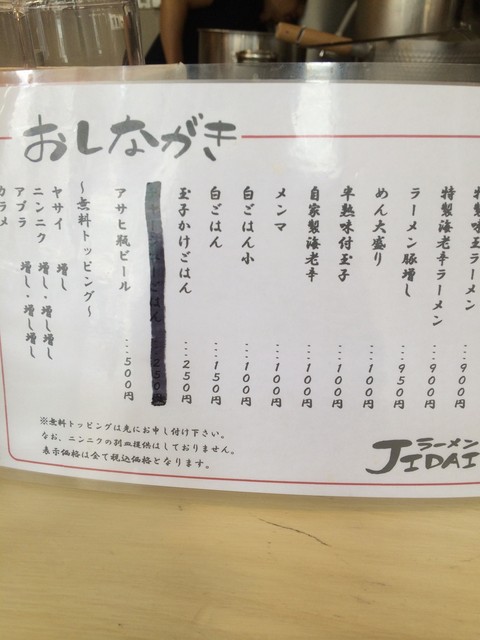 おしながき
ラーメン
…900円
特製海老辛ラーメン …900円
ラーメン豚増し …950円
めん大盛り …100円
半熟味付玉子 …100円
自家製海老辛 …100円
メンマ …100円
白ごはん小 …100円
白ごはん …150円
玉子かけごはん …250円
ごはん …250円
アサヒ瓶ビール …500円
～無料トッピング～
ヤサイ 増し
ニンニク 増し・増し増し
アブラ 増し・増し増し
カラメ
※無料トッピングは先にお申し付け下さい。
なお、ニンニクの別皿提供はしておりません。
表示価格は全て税込価格となります。
ラーメン
JIDAI